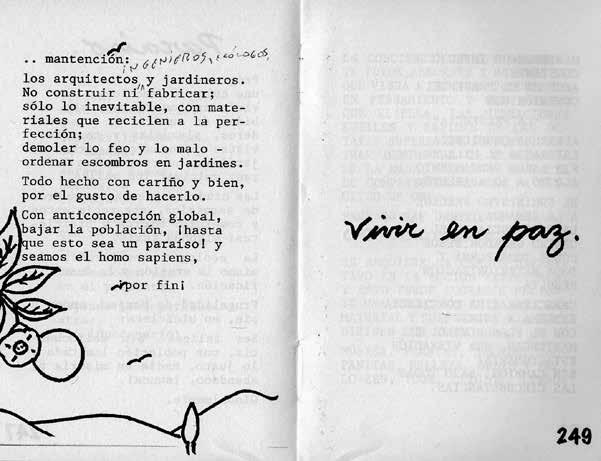 .. mantención:
INGENIEROS, ECÓLOGOS,
los arquitectos y jardineros.
No construir ni fabricar;
sólo lo inevitable, con mate-
riales que reciclen a la per-
fección;
demoler lo feo y lo malo -
ordenar escombros en jardines.
Todo hecho con cariño y bien,
por el gusto de hacerlo.
Con anticoncepción global,
bajar la población, ¡hasta
que esto sea un paraíso! y
seamos el homo sapiens,
¡por fin!
Vivir en paz.
249